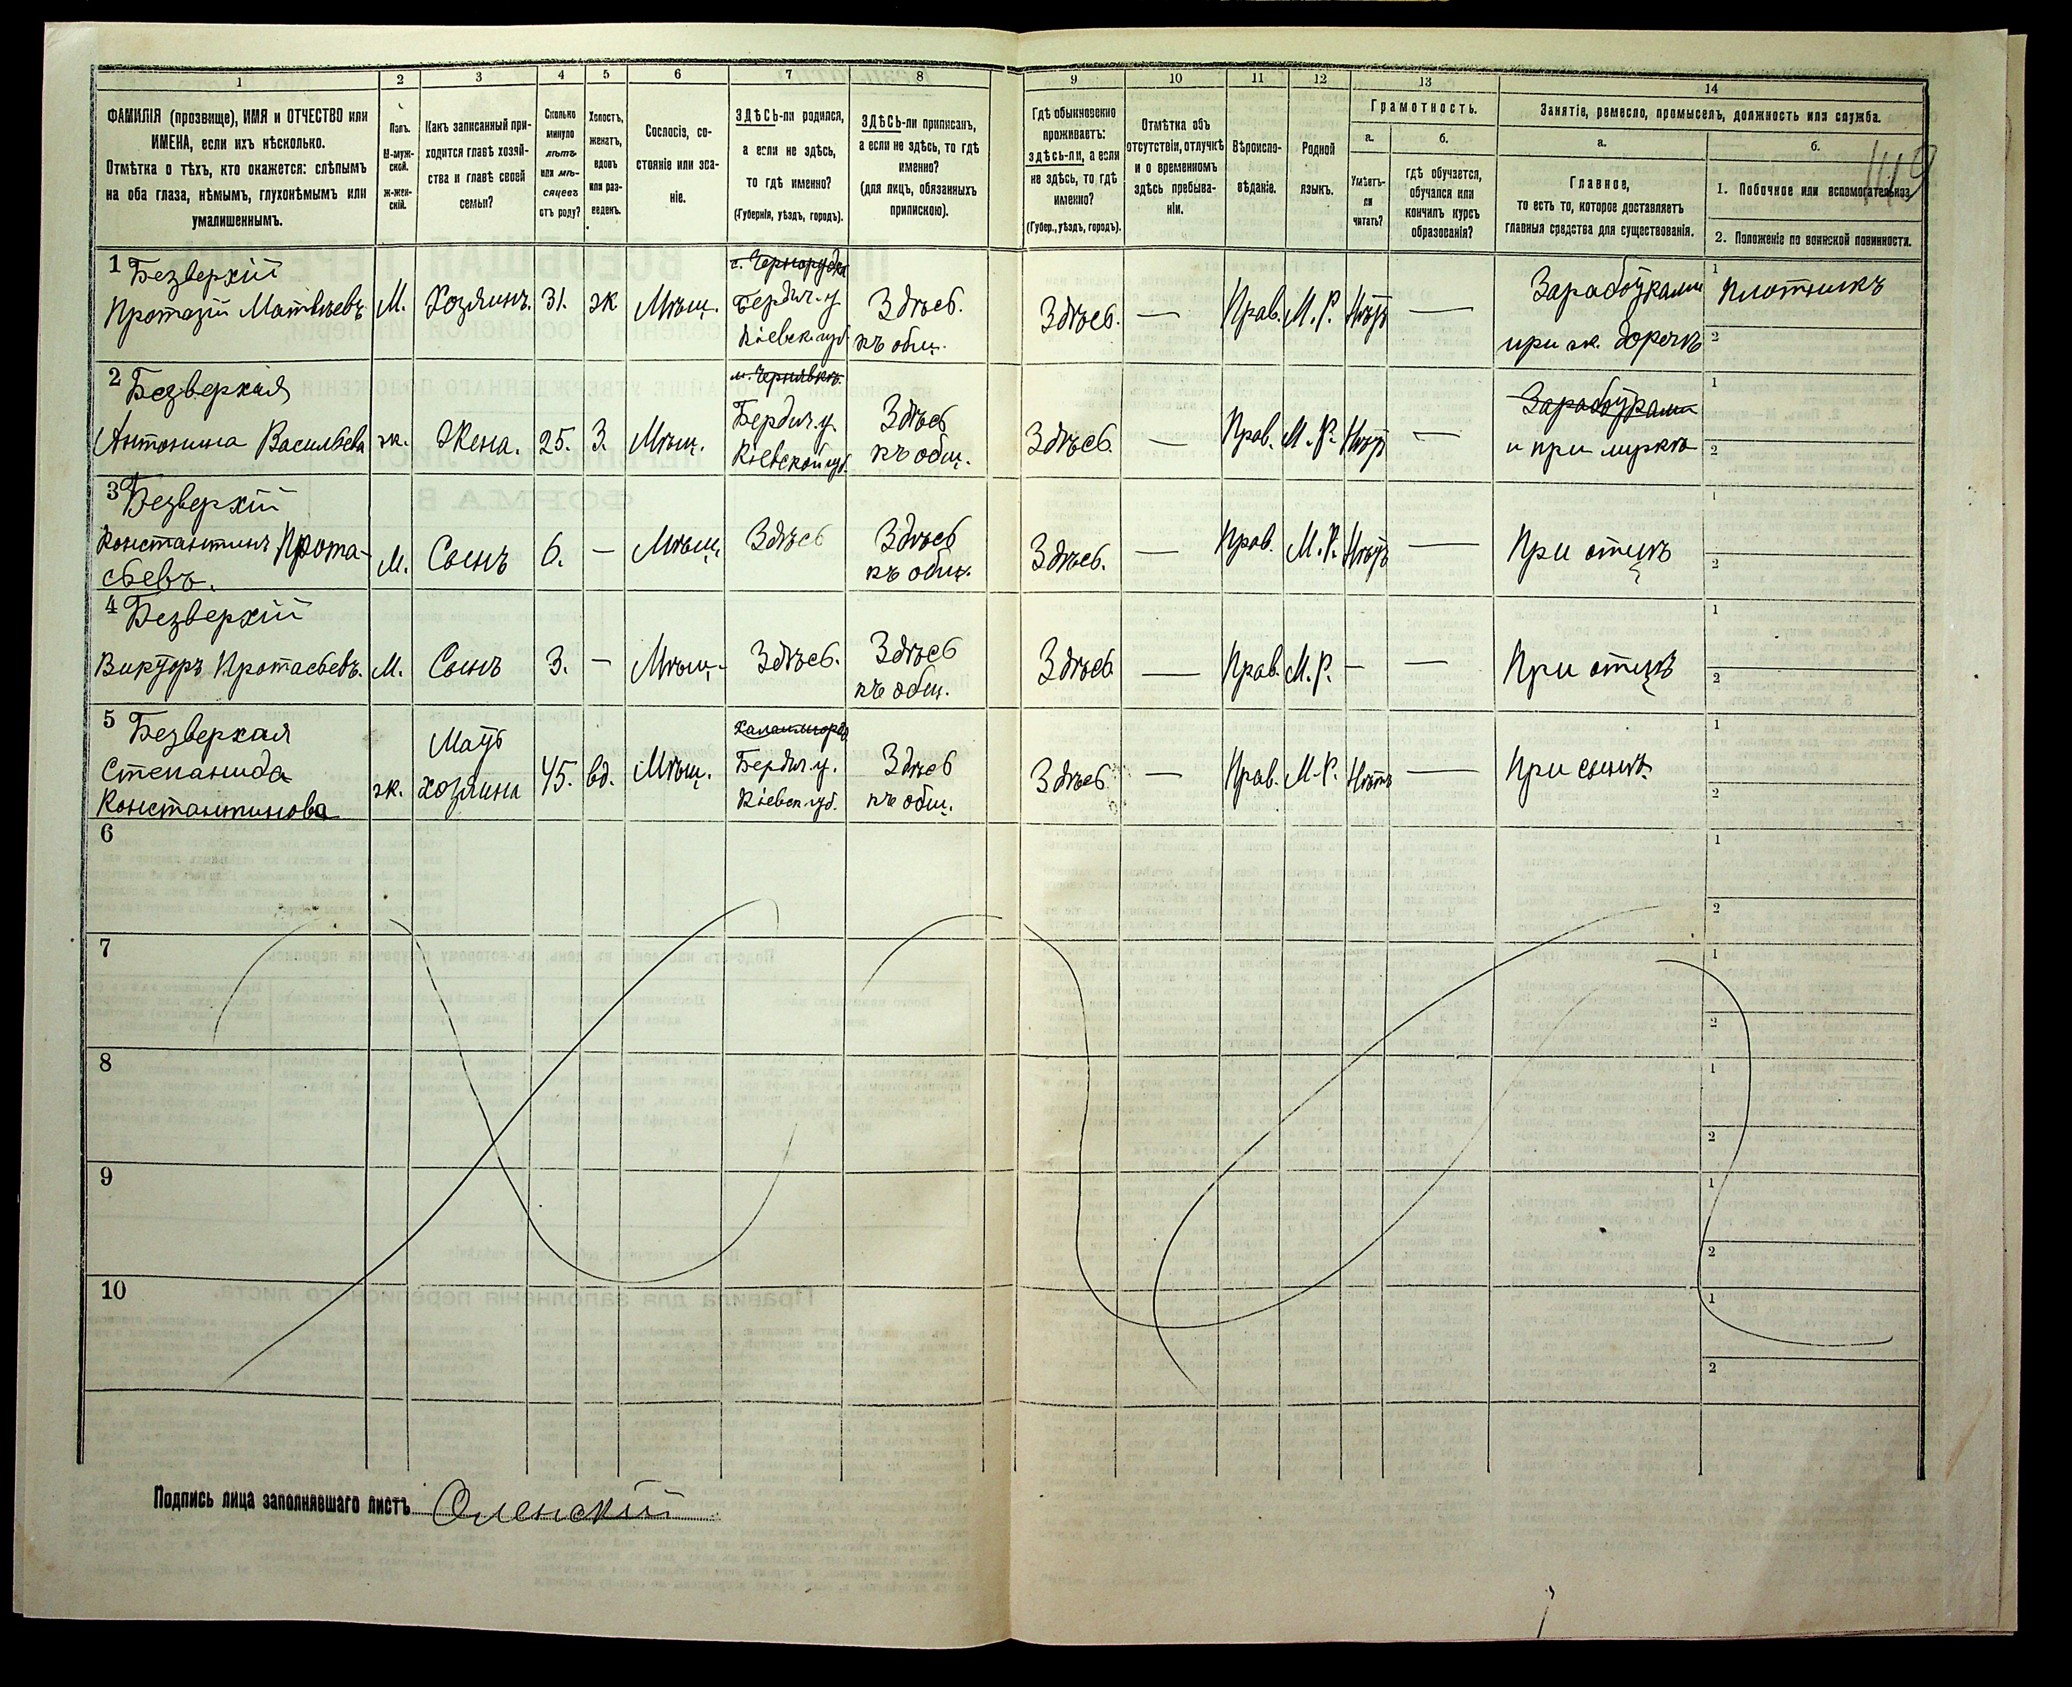 1 2 3 4 5 6 7 8 9 10 11 12 13 14
ФАМИЛІЯ (прозвище), ИМЯ и ОТЧЕСТВО или
ИМЕНА, если ихъ нѣсколько.
Отмѣтка о тѣхъ, кто окажется: слѣпымъ
на оба глаза, нѣмымъ, глухонѣмымъ или
умалишеннымъ.
Полъ.
М-муж-
ской.
Ж-жен-
скій.
Какъ записанный при-
ходится главѣ хозяй-
ства и главѣ своей
семьи?
Сколько
минуло
лѣтъ
или мѣ-
сяцевъ
отъ роду?
Холостъ,
женатъ,
вдовъ
или раз-
веденъ.
Сословіе, со-
стояніе или зва-
ніе.
ЗДѢСЬ-ли родился,
а если не здѣсь,
то гдѣ именно?
(Губернія, уѣздъ, городъ).
ЗДѢСЬ-ли приписанъ,
а если не здѣсь, то гдѣ
именно?
(для лицъ, обязанныхъ
припискою).
Гдѣ обыкновенно
проживаетъ:
здѣсь-ли, а если
не здѣсь, то гдѣ
именно?
(Губер., уѣздъ, городъ).
Отмѣтка объ
отсутствіи, отлучкѣ
и о временномъ
здѣсь пребыва-
ніи.
Вѣроиспо-
вѣданіе.
Родной
языкъ.
Грамотность.
а.
Умѣетъ-
ли
читать?
б.
гдѣ обучается,
обучался или
кончилъ курсъ
образованія?
Занятіе, ремесло, промыселъ, должность или служба.
а.
Главное,
то есть то, которое доставляетъ
главныя средства для существованія.
б.
1. Побочное или вспомогательное.
2. Положеніе по воинской повинности.
1 Безверхій
Протазій Матвѣевъ
М.
Хозяинъ.
31.
ж
Мѣщ.
Бердич. у.
Кіевск. губ.
Здѣсь.
къ общ.
Здѣсь.
—
Прав.
М. Р.
Нѣтъ
—
Заработками
при ж. дорогѣ
1 Плотникъ
2
2 Безверхая
Антонина Васильева
ж.
Жена.
25.
З.
Мѣщ.
Бердич. у.
Кіевской губ.
Здѣсь
къ общ.
Здѣсь.
—
Прав.
М. Р.
Нѣтъ
—
Заработками
и при мужѣ
1
2
3 Безверхій
Константинъ Прота-
сьевъ.
М.
Сынъ
6.
—
Мѣщ.
Здѣсь
Здѣсь
къ общ.
Здѣсь.
—
Прав.
М. Р.
Нѣтъ
—
При отцѣ
1
2
4 Безверхій
Викторъ Протасьевъ.
М.
Сынъ
3.
—
Мѣщ.
Здѣсь.
Здѣсь
къ общ.
Здѣсь
—
Прав.
М. Р.
—
—
При отцѣ
1
2
5 Безверхая
Степанида
Константинова
ж.
Мать
хозяина
45.
вд.
Мѣщ.
Бердич. у.
Кіевск. губ.
Здѣсь
къ общ.
Здѣсь
—
Прав.
М. Р.
Нѣтъ
—
При сынѣ.
1
2
6
1
2
7
1
2
8
1
2
9
1
2
10
1
2
Подпись лица заполнявшаго листъ Оленскій